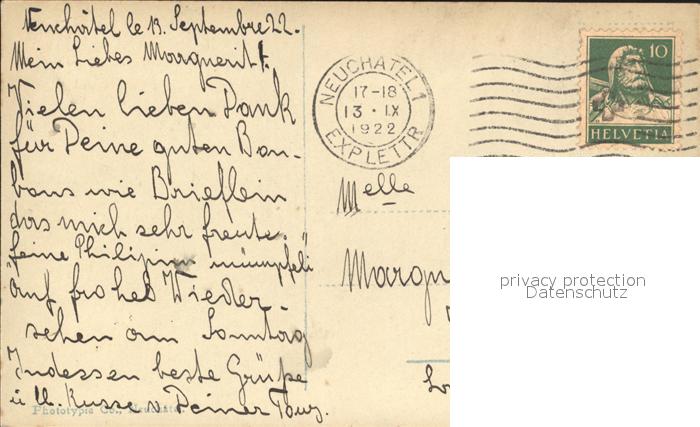 Neuchâtel le 13. Septembre 22.
Mein Liebes Marguerit
Vielen lieben Dank
für Deine guten Bon-
bons wie Brieflein
das mich sehr freute.
feine
Auf frohes Wieder-
sehen am Sonntag
Indessen beste Grüße
u. Kusse v. Deiner
Phototypie Co., Neuchâtel.
NEUCHATEL 1
17-18
13 • IX
1922
EXP. LETTR.
10
HELVETIA
Melle
Margu
privacy protection
Datenschutz